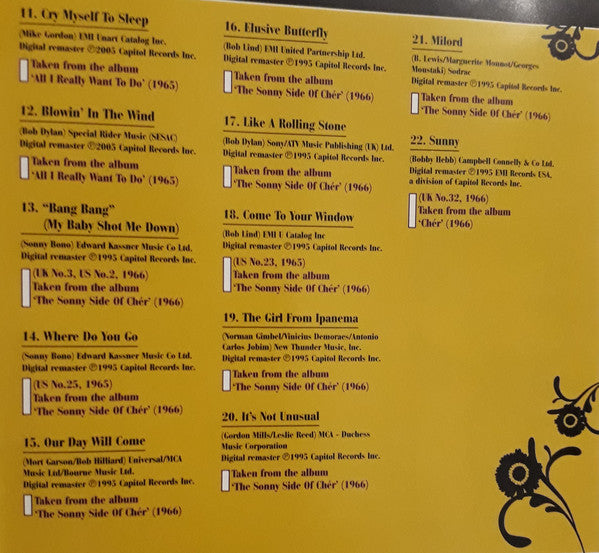 11. Cry Myself To Sleep
(Mike Gordon) EMI Unart Catalog Inc.
Digital remaster ℗2005 Capitol Records Inc.
Taken from the album
'All I Really Want To Do' (1965)
12. Blowin' In The Wind
(Bob Dylan) Special Rider Music (SESAC)
Digital remaster ℗2005 Capitol Records Inc.
Taken from the album
'All I Really Want To Do' (1965)
13. "Bang Bang"
(My Baby Shot Me Down)
(Sonny Bono) Edward Kassner Music Co Ltd.
Digital remaster ℗1995 Capitol Records Inc.
(UK No.3, US No.2, 1966)
Taken from the album
'The Sonny Side Of Chér' (1966)
14. Where Do You Go
(Sonny Bono) Edward Kassner Music Co Ltd.
Digital remaster ℗1995 Capitol Records Inc.
(US No.25, 1965)
Taken from the album
'The Sonny Side Of Chér' (1966)
15. Our Day Will Come
(Mort Garson/Bob Hilliard) Universal/MCA
Music Ltd/Bourne Music Ltd.
Digital remaster ℗1995 Capitol Records Inc.
Taken from the album
'The Sonny Side Of Chér' (1966)
16. Elusive Butterfly
(Bob Lind) EMI United Partnership Ltd.
Digital remaster ℗1995 Capitol Records Inc.
Taken from the album
'The Sonny Side Of Chér' (1966)
17. Like A Rolling Stone
(Bob Dylan) Sony/ATV Music Publishing (UK) Ltd.
Digital remaster ℗1995 Capitol Records Inc.
Taken from the album
'The Sonny Side Of Chér' (1966)
18. Come To Your Window
(Bob Lind) EMI U Catalog Inc
Digital remaster ℗1995 Capitol Records Inc.
(US No.23, 1965)
Taken from the album
'The Sonny Side Of Chér' (1966)
19. The Girl From Ipanema
(Norman Gimbel/Vinicius Demoraes/Antonio
Carlos Jobim) New Thunder Music, Inc.
Digital remaster ℗1995 Capitol Records Inc.
Taken from the album
'The Sonny Side Of Chér' (1966)
20. It's Not Unusual
(Gordon Mills/Leslie Reed) MCA - Duchess
Music Corporation
Digital remaster ℗1995 Capitol Records Inc.
Taken from the album
'The Sonny Side Of Chér' (1966)
21. Milord
(B. Lewis/Marguerite Monnot/Georges
Moustaki) Sodrac
Digital remaster ℗1995 Capitol Records Inc.
Taken from the album
'The Sonny Side Of Chér' (1966)
22. Sunny
(Bobby Hebb) Campbell Connelly & Co Ltd.
Digital remaster ℗1995 EMI Records USA,
a division of Capitol Records Inc.
(UK No.32, 1966)
Taken from the album
'Chér' (1966)